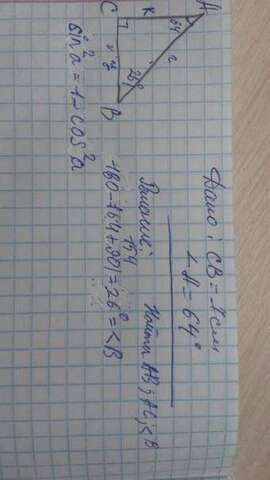 Дано: CB = 2 см;
∠A = 64°
Найти AB; AC; <B
Решение:
154
180-(64+90)=26°=<B
sin²a = 1-cos²a
A
64
c
x
C
26°
B